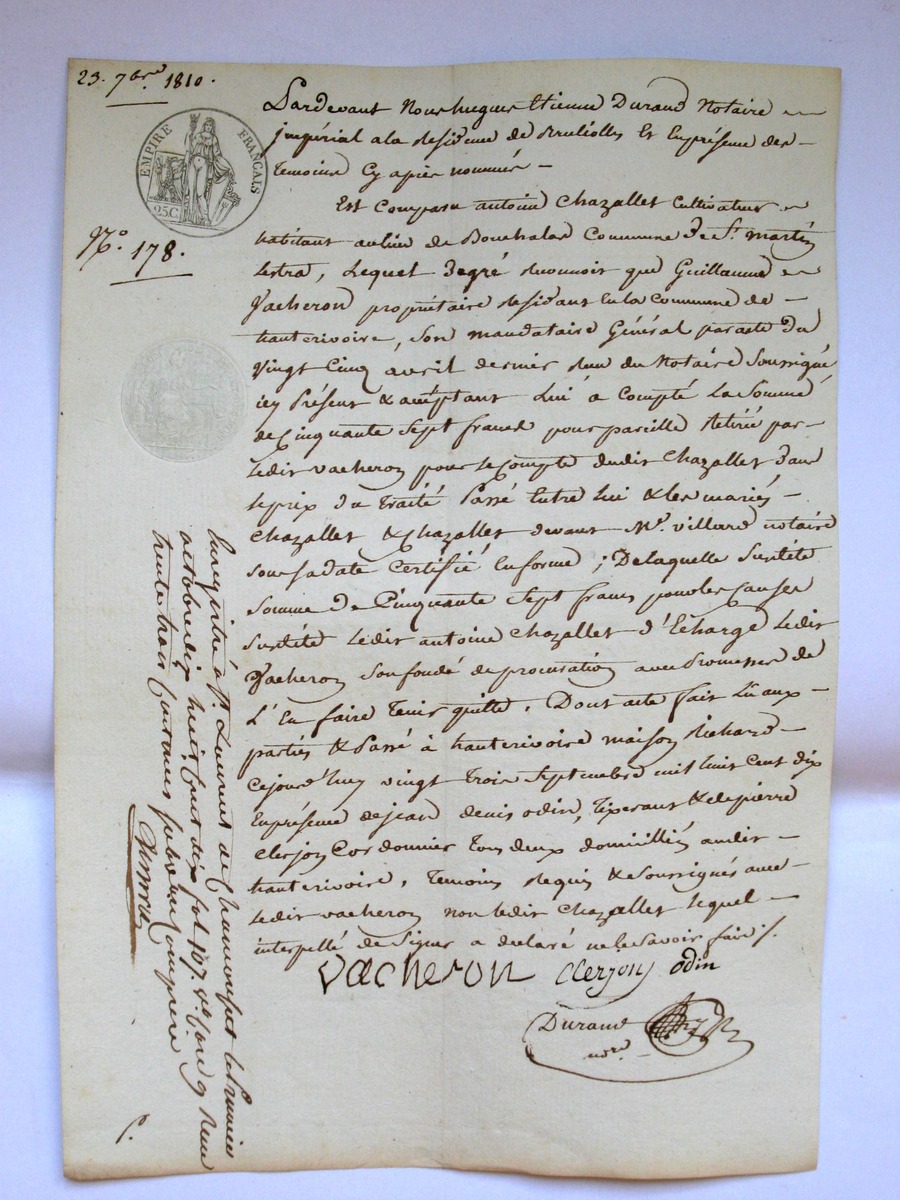 23. 7bre 1810.
EMPIRE FRANÇAIS
25C.
No. 178.
Pardevant Nous hugues Etienne Durand Notaire
jmpérial a la Residence de Brulioles Et En présence des
temoins Cy après nommés
Est Comparu antoine Chazallet Cultivateur
habitant au lieu de Bouchalas Commune de St. Martin
lestra, Lequel de gré Reconnoit que Guillaume
Vacheron propriétaire Residant En la Commune de
hauterivoire, Son mandataire Général par acte du
vingt Cinq avril dernier Reçu du Notaire Soussigné
icy Présent & acceptant Lui a Compté La Somme
de Cinquante Sept francs pour pareille Retirée par
Ledit vacheron pour le Compte dudit Chazallet dans
le prix du traité Passé Entre Lui & les mariés
Chazallet & Chazallet devant Me. villard notaire
sous sa date Certifié En forme ; De laquelle Susdite
Somme de Cinquante Sept francs pour les Causes
Susdite Ledit antoine Chazallet d'Echarge Ledit
Vacheron Son fondé de procuration avec Promesse de
L'En faire tenir quitte. Dont acte fait Lu aux
parties & Passé à hauterivoire maison Richard
Cejourd'huy vingt trois Septembre mil huit Cent dix
En présence de jean denis odin, tixerant & de pierre
Clerjon Cordonnier tous deux domicilliés audit
hauterivoire, temoins Requis & Soussignés avec
Ledit vacheron non Ledit Chazallet Lequel
interpellé de Signer a déclaré ne le Savoir faire ./.
vacheron Clerjon odin
Durand
nore
Enregistré à St. Laurent de Chamousset le Premier
octobre dix huit Cent dix fol 107 vo. Reçu
trente trois Centimes subvention Comprise